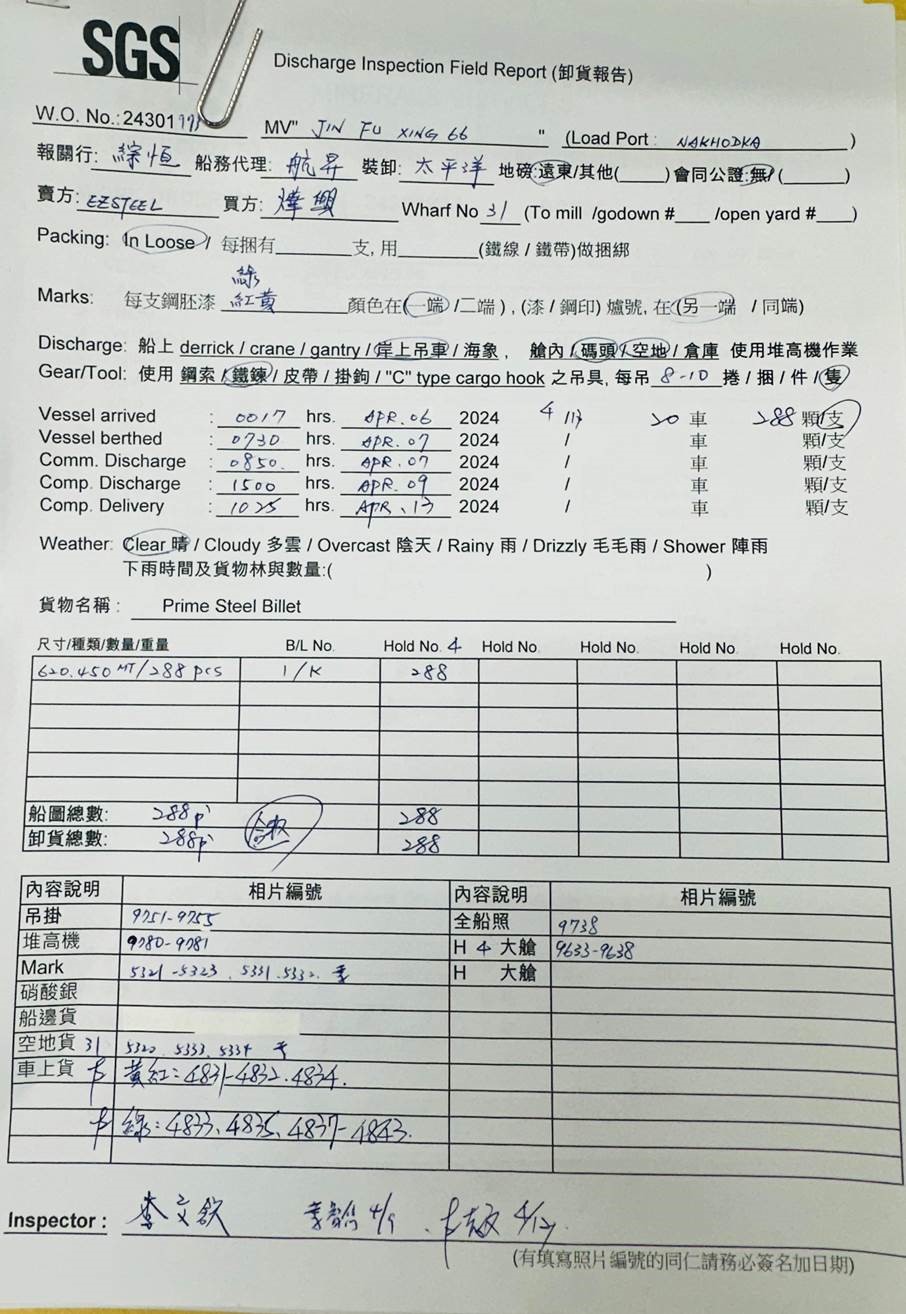 SGS
Discharge Inspection Field Report (卸貨報告)
W.O. No.: 24301
MV" JIN FU XING 66 " (Load Port : NAKHODKA )
報關行: 綜恒 船務代理: 航昇 裝卸: 太平洋 地磅:遠東/其他( )會同公證:無/ ( )
賣方: EZSTEEL 買方: 燁興 Wharf No 31 (To mill /godown # /open yard # )
Packing: In Loose / 每捆有 支, 用 (鐵線 / 鐵帶)做捆綁
綠
Marks: 每支鋼胚漆 紅黃 顏色在(一端 /二端 ) , (漆 / 鋼印) 爐號, 在 (另一端 / 同端)
Discharge: 船上 derrick / crane / gantry / 岸上吊車 / 海象 , 艙內 / 碼頭 / 空地 / 倉庫 使用堆高機作業
Gear/Tool: 使用 鋼索 / 鐵鍊 / 皮帶 / 掛鉤 / "C" type cargo hook 之吊具, 每吊 8-10 捲 / 捆 / 件 / 隻
Vessel arrived : 0017 hrs. APR.06 2024 4 /13 20 車 288 顆/支
Vessel berthed : 0730 hrs. APR.07 2024 / 車 顆/支
Comm. Discharge : 0850. hrs. APR.07 2024 / 車 顆/支
Comp. Discharge : 1500 hrs. APR.09 2024 / 車 顆/支
Comp. Delivery : 1025 hrs. APR.13 2024 / 車 顆/支
Weather: Clear 晴 / Cloudy 多雲 / Overcast 陰天 / Rainy 雨 / Drizzly 毛毛雨 / Shower 陣雨
下雨時間及貨物林與數量:( )
貨物名稱 : Prime Steel Billet
尺寸/種類/數量/重量 B/L No. Hold No. 4 Hold No. Hold No. Hold No. Hold No.
620.450 MT/288 pcs 1/K 288
船圖總數: 288 288
卸貨總數: 288 288
內容說明 相片編號 內容說明 相片編號
吊掛 9751-9755 全船照 9738
堆高機 9780-9781 H 4 大艙 9633-9638
Mark 5321-5323、5331.5332. 李 H 大艙
硝酸銀
船邊貨
空地貨 31 5320.5333.5334 李
車上貨 黃紅:4831-4832.4834.
綠:4833、4835、4837-4843.
Inspector : 李文欽 4/9 、 4/13
(有填寫照片編號的同仁請務必簽名加日期)